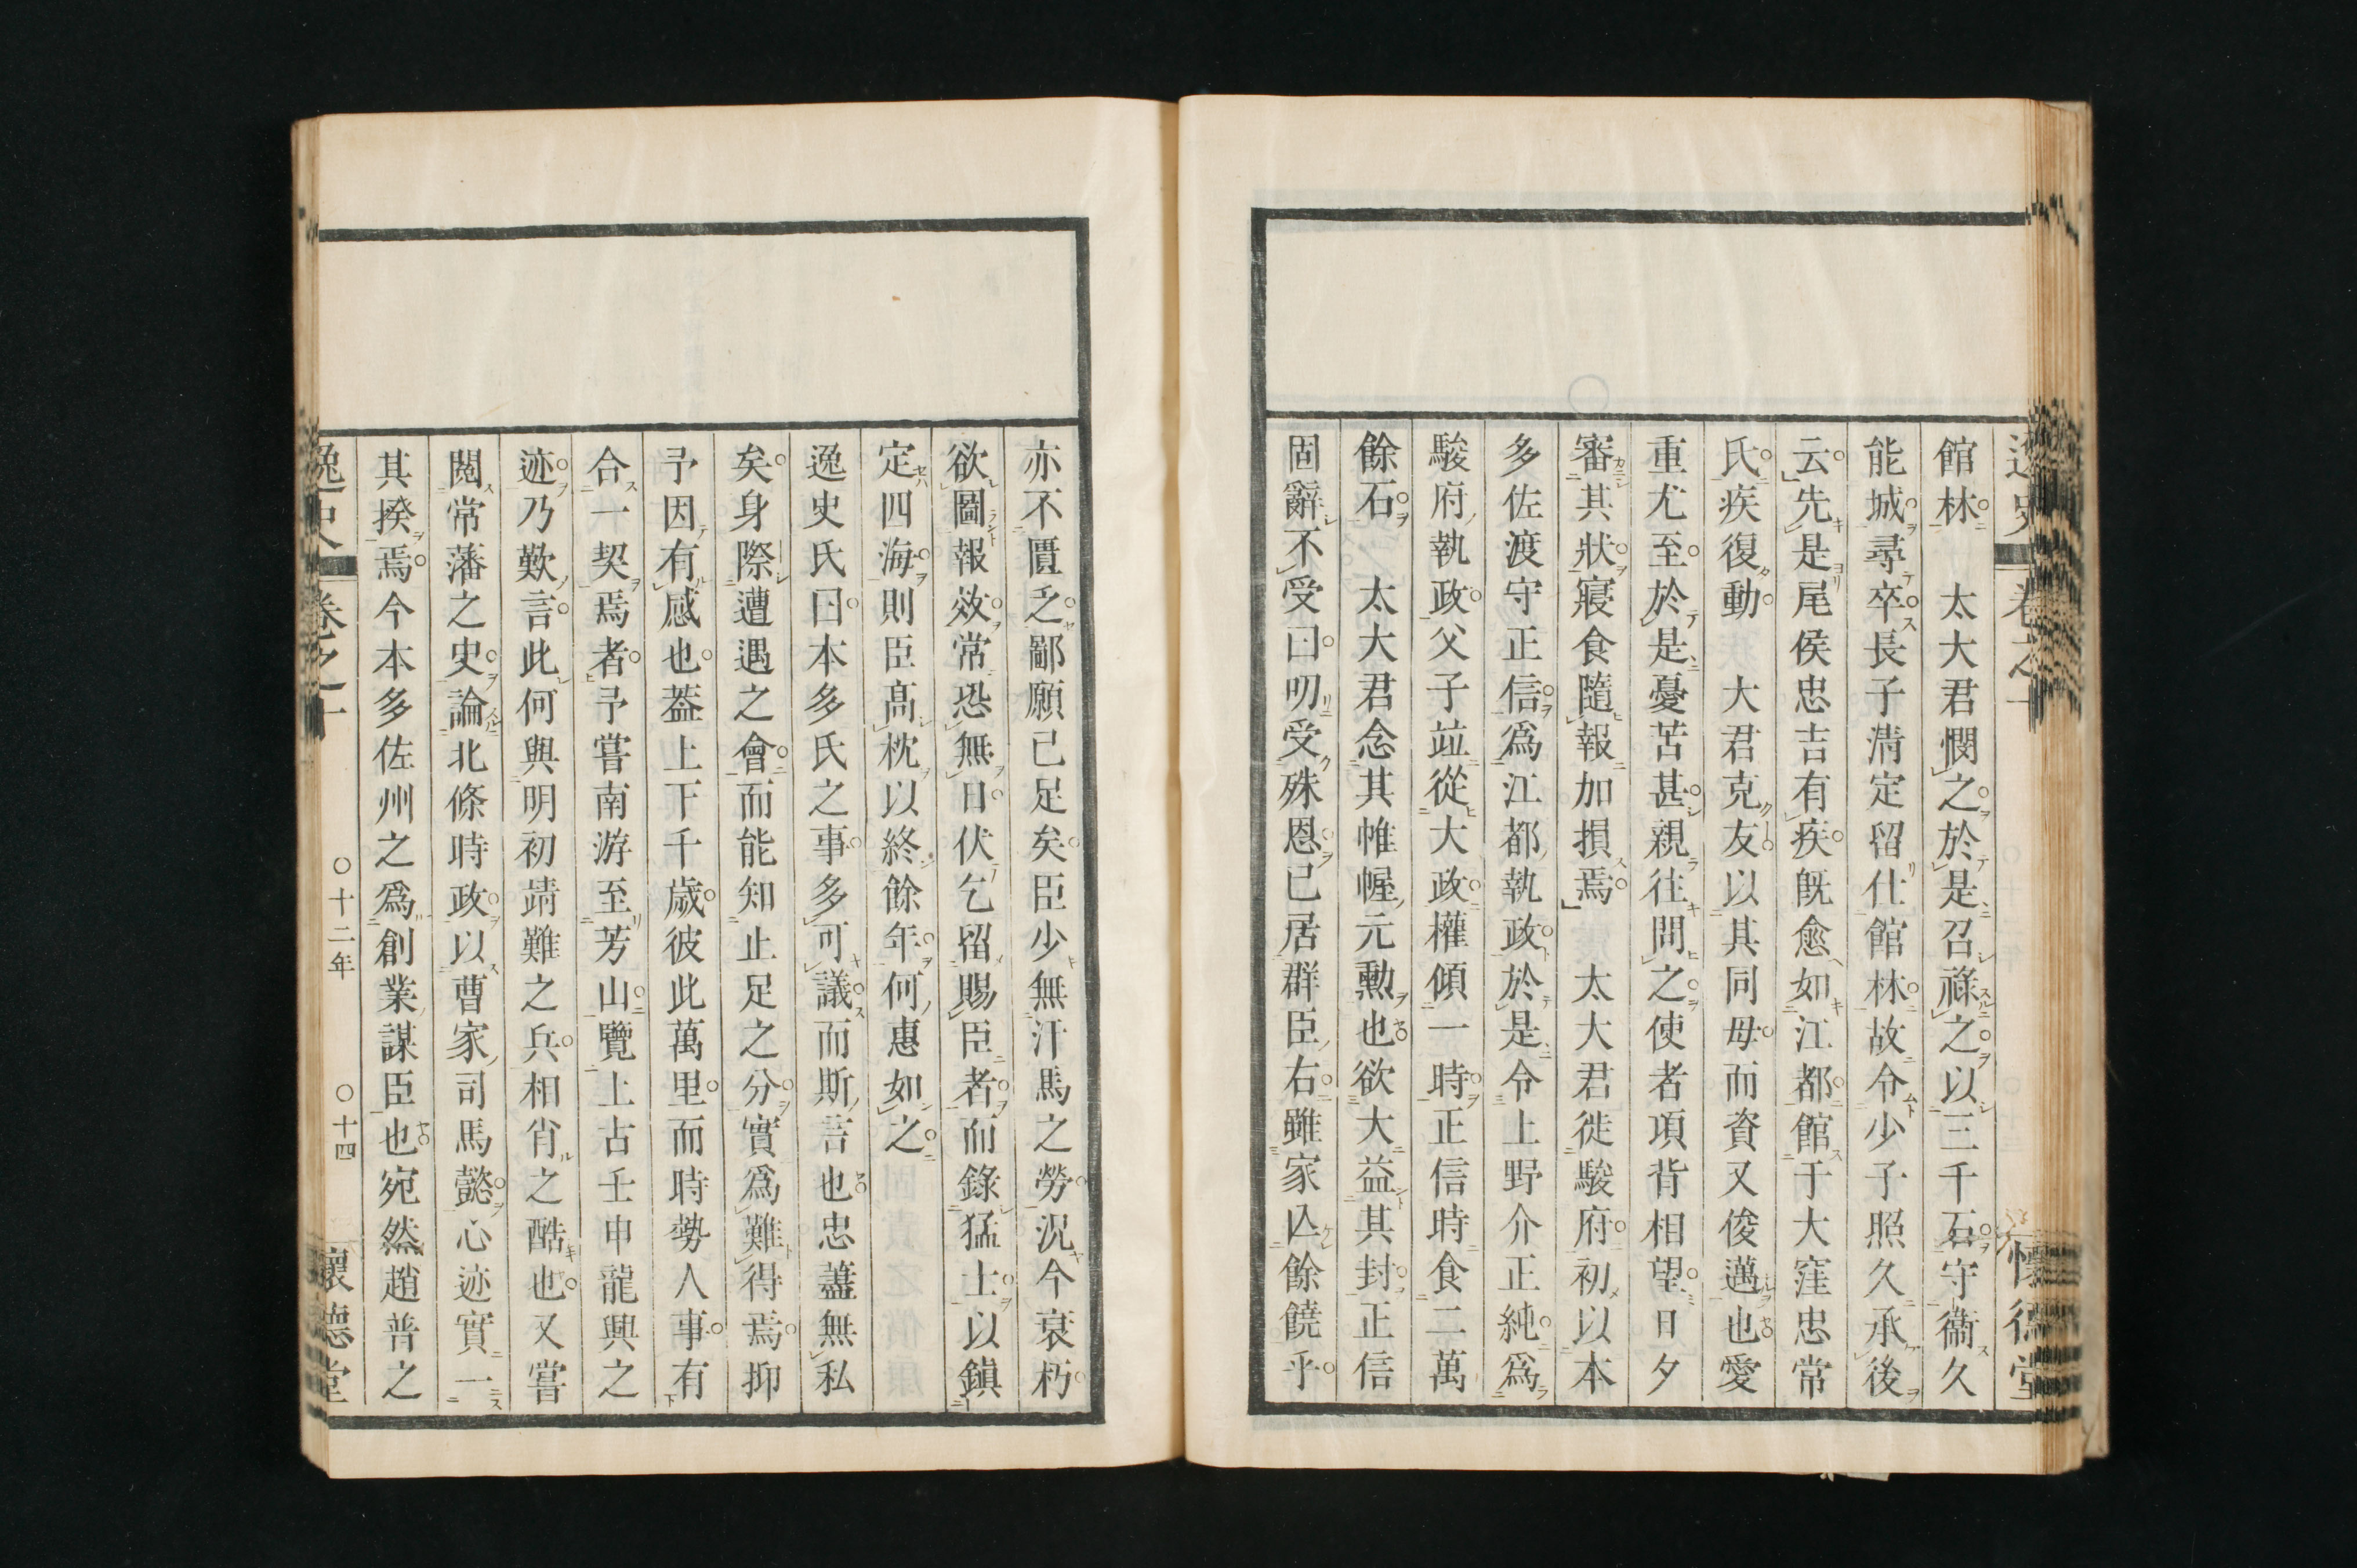 館林太大君憫之於是召祿之以三千石守衞久
能城尋卒長子淸定留仕館林故令少子照久承後
云先是尾侯忠吉有疾旣愈如江都館于大窪忠常
氏疾復動大君克友以其同母而資又俊邁也愛
重尤至於是憂苦甚親往問之使者項背相望日夕
審其狀寢食隨報加損焉太大君徙駿府初以本
多佐渡守正信爲江都執政於是令上野介正純爲
駿府執政父子竝從大政權傾一時正信時食二萬
餘石太大君念其帷幄元勳也欲大益其封正信
固辭不受曰叨受殊恩已居群臣右雖家亾餘饒乎
亦不匱乏鄙願已足矣臣少無汗馬之勞況今衰朽
欲圖報效常恐無日伏乞留賜臣者而錄猛士以鎭
定四海則臣高枕以終餘年何惠如之
逸史氏曰本多氏之事多可議而斯言也忠藎無私
矣身際遭遇之會而能知止足之分實爲難得焉抑
予因有感也蓋上下千歲彼此萬里而時勢人事有
合一契焉者予嘗南游至芳山覽上古壬申龍興之
迹乃歎言此何與明初靖難之兵相肖之酷也又嘗
閱常藩之史論北條時政以曹家司馬懿心迹實一
其揆焉今本多佐州之爲創業謀臣也宛然趙普之
逸史 卷之十 〇十二年 〇十四 懷德堂